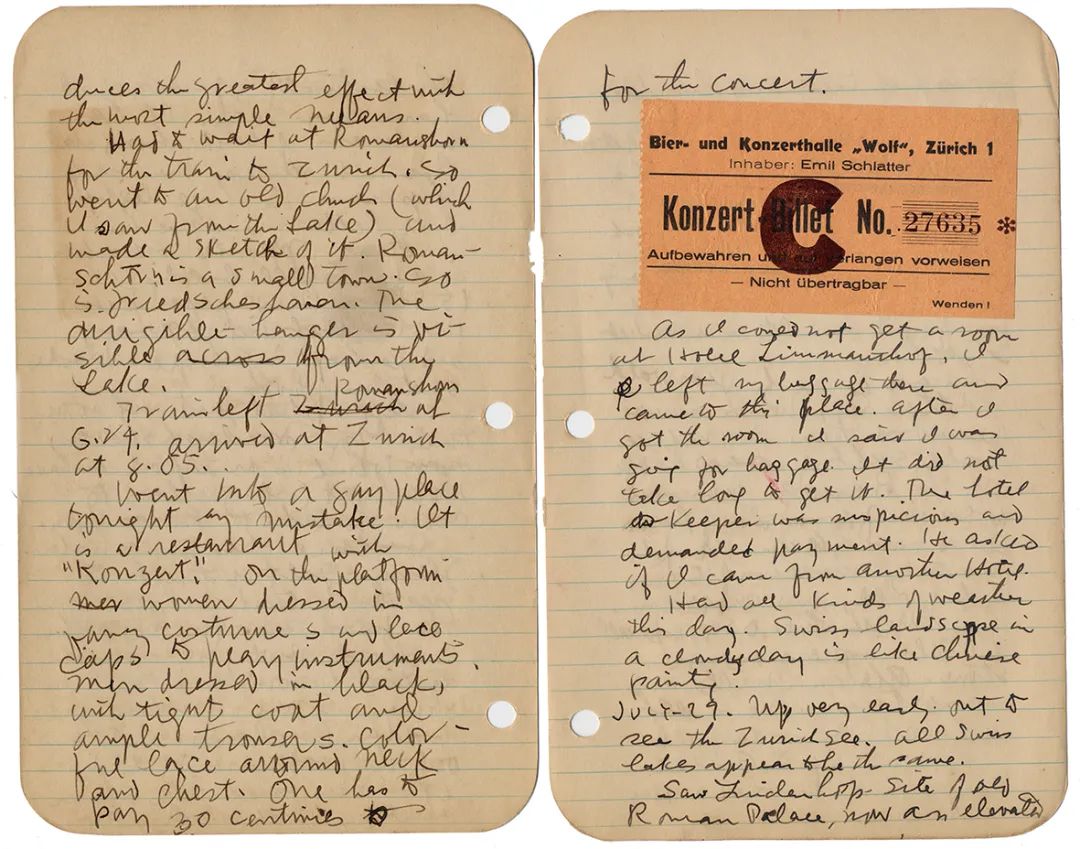 duces the greatest effect with
the most simple means.
Had to wait at Romanshorn
for the train to Zurich. So
went to an old church (which
I saw from the Lake) and
made a sketch of it. Roman-
schorn is a small town. So
is Friedscheshaven. The
dirigible hanger is vi-
sible across from the
Lake.
Train left Zurich Romanshorn at
6.24. arrived at Zurich
at 8.05..
Went into a gay place
tonight by mistake. It
is a restaurant with
"Konzert." On the platform
women dressed in
fancy costumes and lace
caps to play instruments.
men dressed in black,
with tight coat and
ample trousers. Color-
ful lace around neck
and chest. One has to
pay 30 centimes
for the concert.
Bier- und Konzerthalle „Wolf“, Zürich 1
Inhaber: Emil Schlatter
Konzert-Billet No. 27635 *
C
Aufbewahren und auf Verlangen vorweisen
— Nicht übertragbar —
Wenden!
As I could not get a room
at Hotel Limmathof, I
left my baggage there and
came to this place. After I
got the room I said I was
going for baggage. It did not
take long to get it. The hotel
Keeper was suspicious and
demanded payment. He asked
if I came from another Hotel.
Had all kinds of weather
this day. Swiss landscape in
a cloudy day is like chinese
painting.
JULY-29. Up very early. out to
see the Zurich See. all Swiss
lakes appear to be the same.
Saw Lindenhof- site of old
Roman Palace, now an elevated